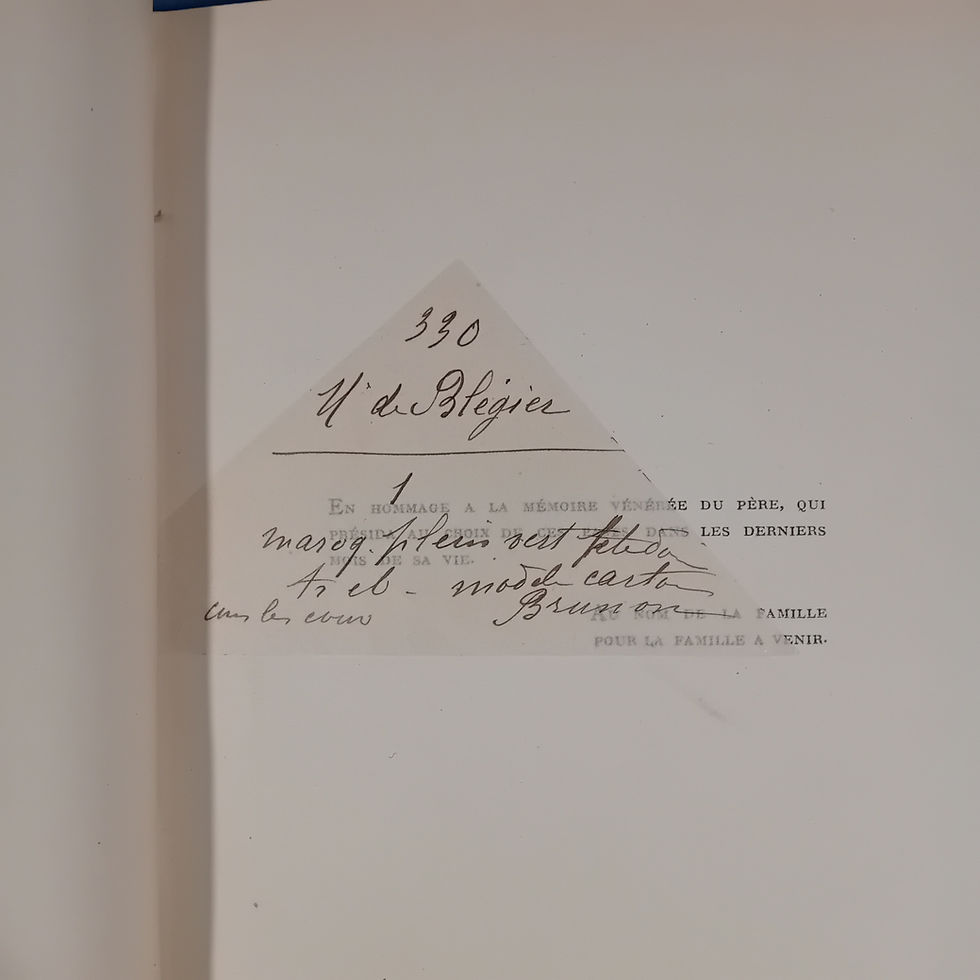 330
de Blégier
1
EN HOMMAGE A LA MÉMOIRE VÉNÉRÉE DU PÈRE, QUI
PRÉSIDA AU CHOIX DE CES PAGES DANS LES DERNIERS
MOIS DE SA VIE.
maroq. plein vert
modèle carton
Brunon
AU NOM DE LA FAMILLE
POUR LA FAMILLE A VENIR.